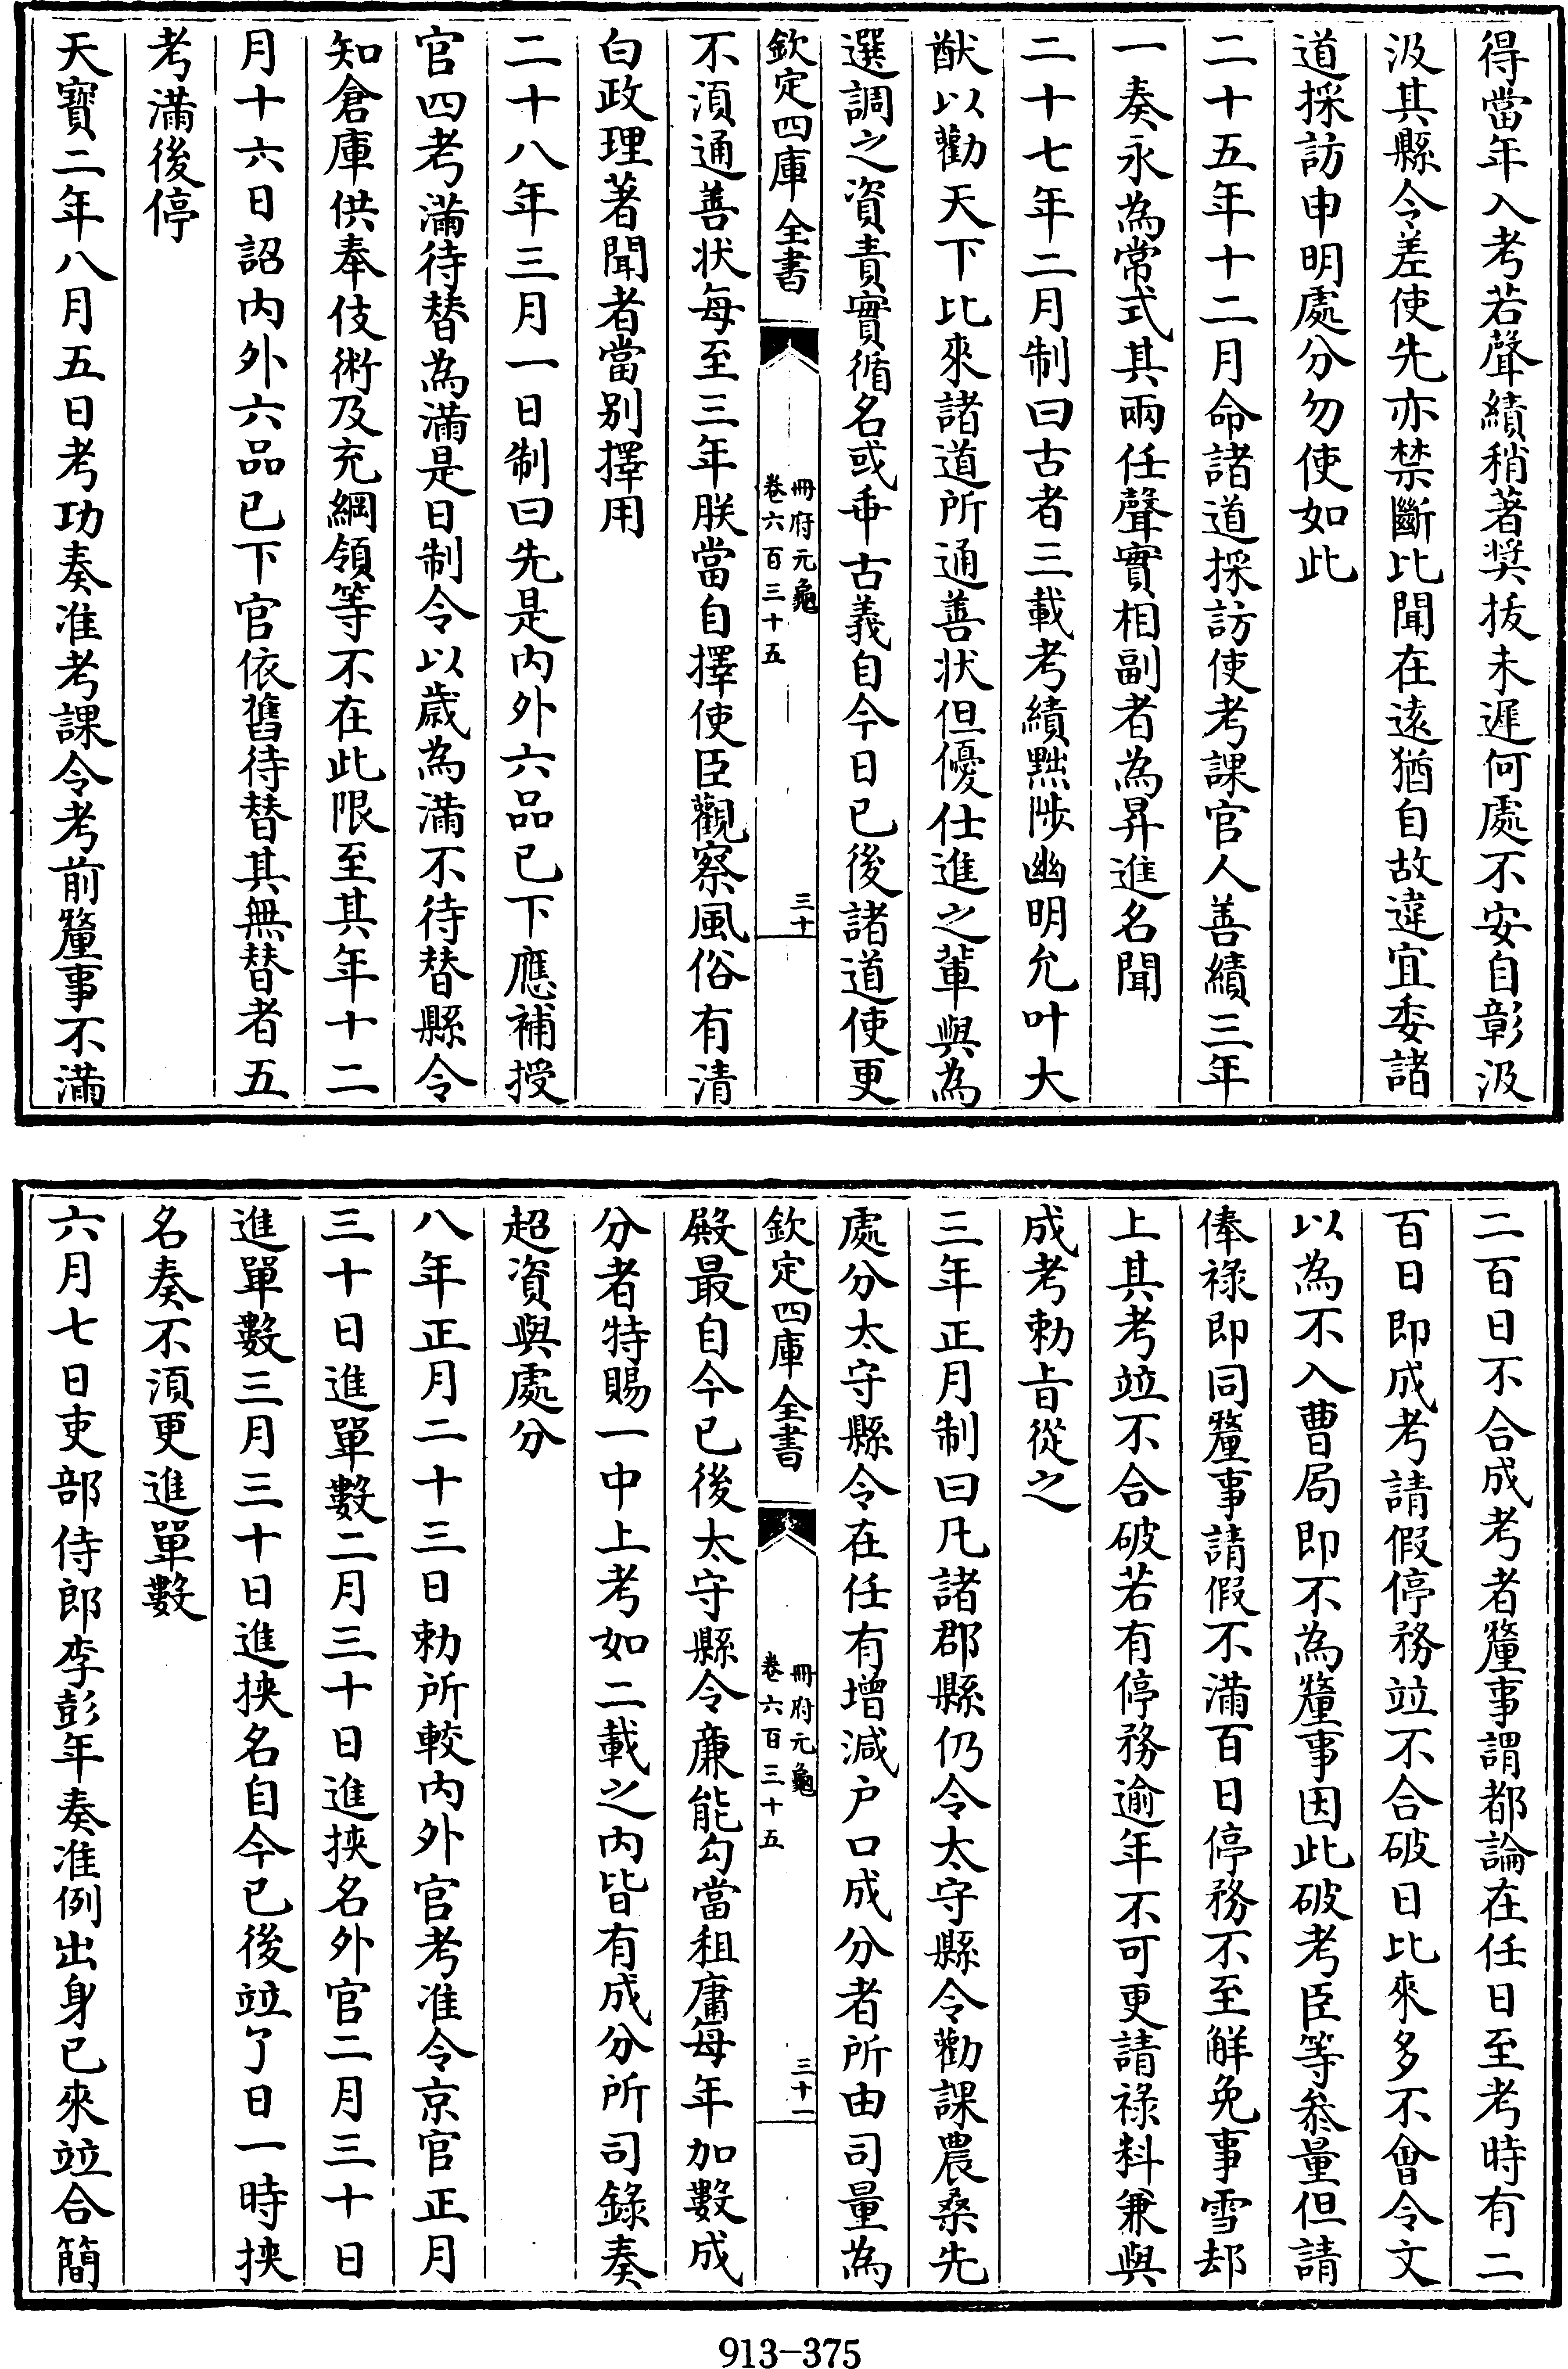 得當年入考若聲績稍著奬拔未遲何處不安自彰汲
汲其縣令差使先亦禁斷比聞在逺猶自故違宜委諸
道採訪申明處分勿使如此
二十五年十二月命諸道採訪使考課官人善績三年
一奏永為常式其兩任聲實相副者為昇進名聞
二十七年二月制曰古者三載考績黜陟幽明允叶大
猷以勸天下比來諸道所通善狀但優仕進之輩與為
選調之資責實循名或乖古義自今日已後諸道使更
欽定四庫全書
冊府元龜
卷六百三十五
三十
不須通善狀每至三年朕當自擇使臣觀察風俗有清
白政理著聞者當別擇用
二十八年三月一日制曰先是内外六品已下應補授
官四考滿待替為滿是日制令以歳為滿不待替縣令
知倉庫供奉伎術及充綱領等不在此限至其年十二
月十六日詔内外六品已下官依舊待替其無替者五
考滿後停
天寳二年八月五日考功奏准考課令考前釐事不滿
二百日不合成考者釐事謂都論在任日至考時有二
百日即成考請假停務竝不合破日比來多不㑹令文
以為不入曹局即不為釐事因此破考臣等叅量但請
俸禄即同釐事請假不滿百日停務不至解免事雪却
上其考竝不合破若有停務逾年不可更請禄料兼與
成考勅旨從之
三年正月制曰凡諸郡縣仍令太守縣令勸課農桑先
處分太守縣令在任有增減户口成分者所由司量為
欽定四庫全書
冊府元龜
卷六百三十五
三十一
殿最自今已後太守縣令亷能勾當租庸每年加數成
分者特賜一中上考如二載之内皆有成分所司錄奏
超資與處分
八年正月二十三日勅所較内外官考准令京官正月
三十日進單數二月三十日進挾名外官二月三十日
進單數三月三十日進挾名自今已後竝了日一時挾
名奏不須更進單數
六月七日吏部侍郎李彭年奏准例出身已來竝合簡
913-375